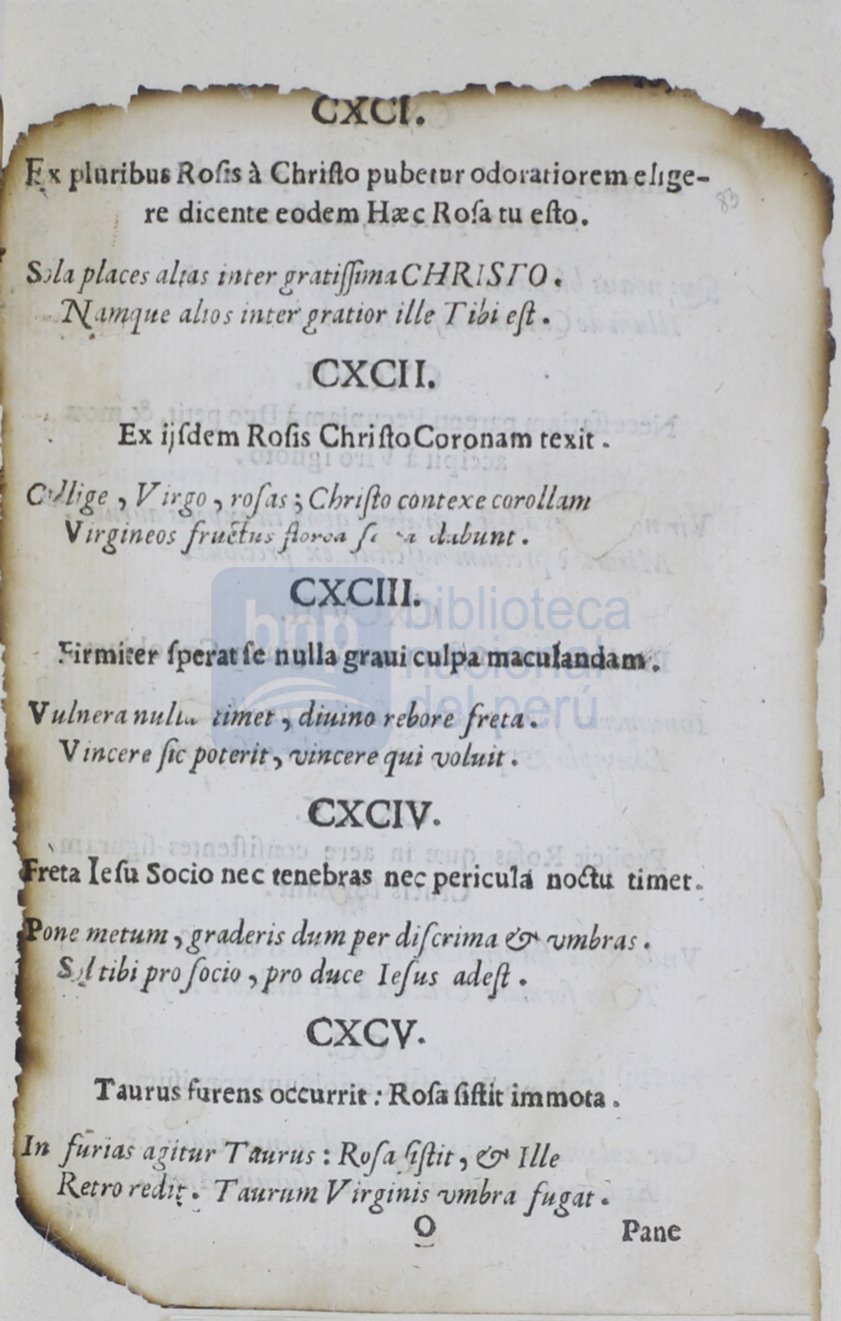 CXCI.
Ex pluribus Roſis à Chriſto pubetur odoratiorem elige-
83
re dicente eodem Hæc Roſa tu eſto.
Sola places alias inter gratiſſima CHRISTO.
Namque alios inter gratior ille Tibi eſt.
CXCII.
Ex ijſdem Roſis Chriſto Coronam texit.
Collige, Virgo, roſas; Chriſto contexe corollam
Virgineos fructus florea dabunt.
CXCIII.
Firmiter ſperat ſe nulla graui culpa maculandam.
Vulnera nulla timet, diuino rebore freta.
Vincere ſic poterit, vincere qui voluit.
CXCIV.
Freta Ieſu Socio nec tenebras nec pericula noctu timet.
Pone metum, graderis dum per diſcrima & vmbras.
Sol tibi pro ſocio, pro duce Ieſus adeſt.
CXCV.
Taurus furens occurrit: Roſa ſiſtit immota.
In furias agitur Taurus: Roſa ſiſtit, & Ille
Retro redit. Taurum Virginis vmbra fugat.
O Pane
bnp biblioteca
nacional
del perú